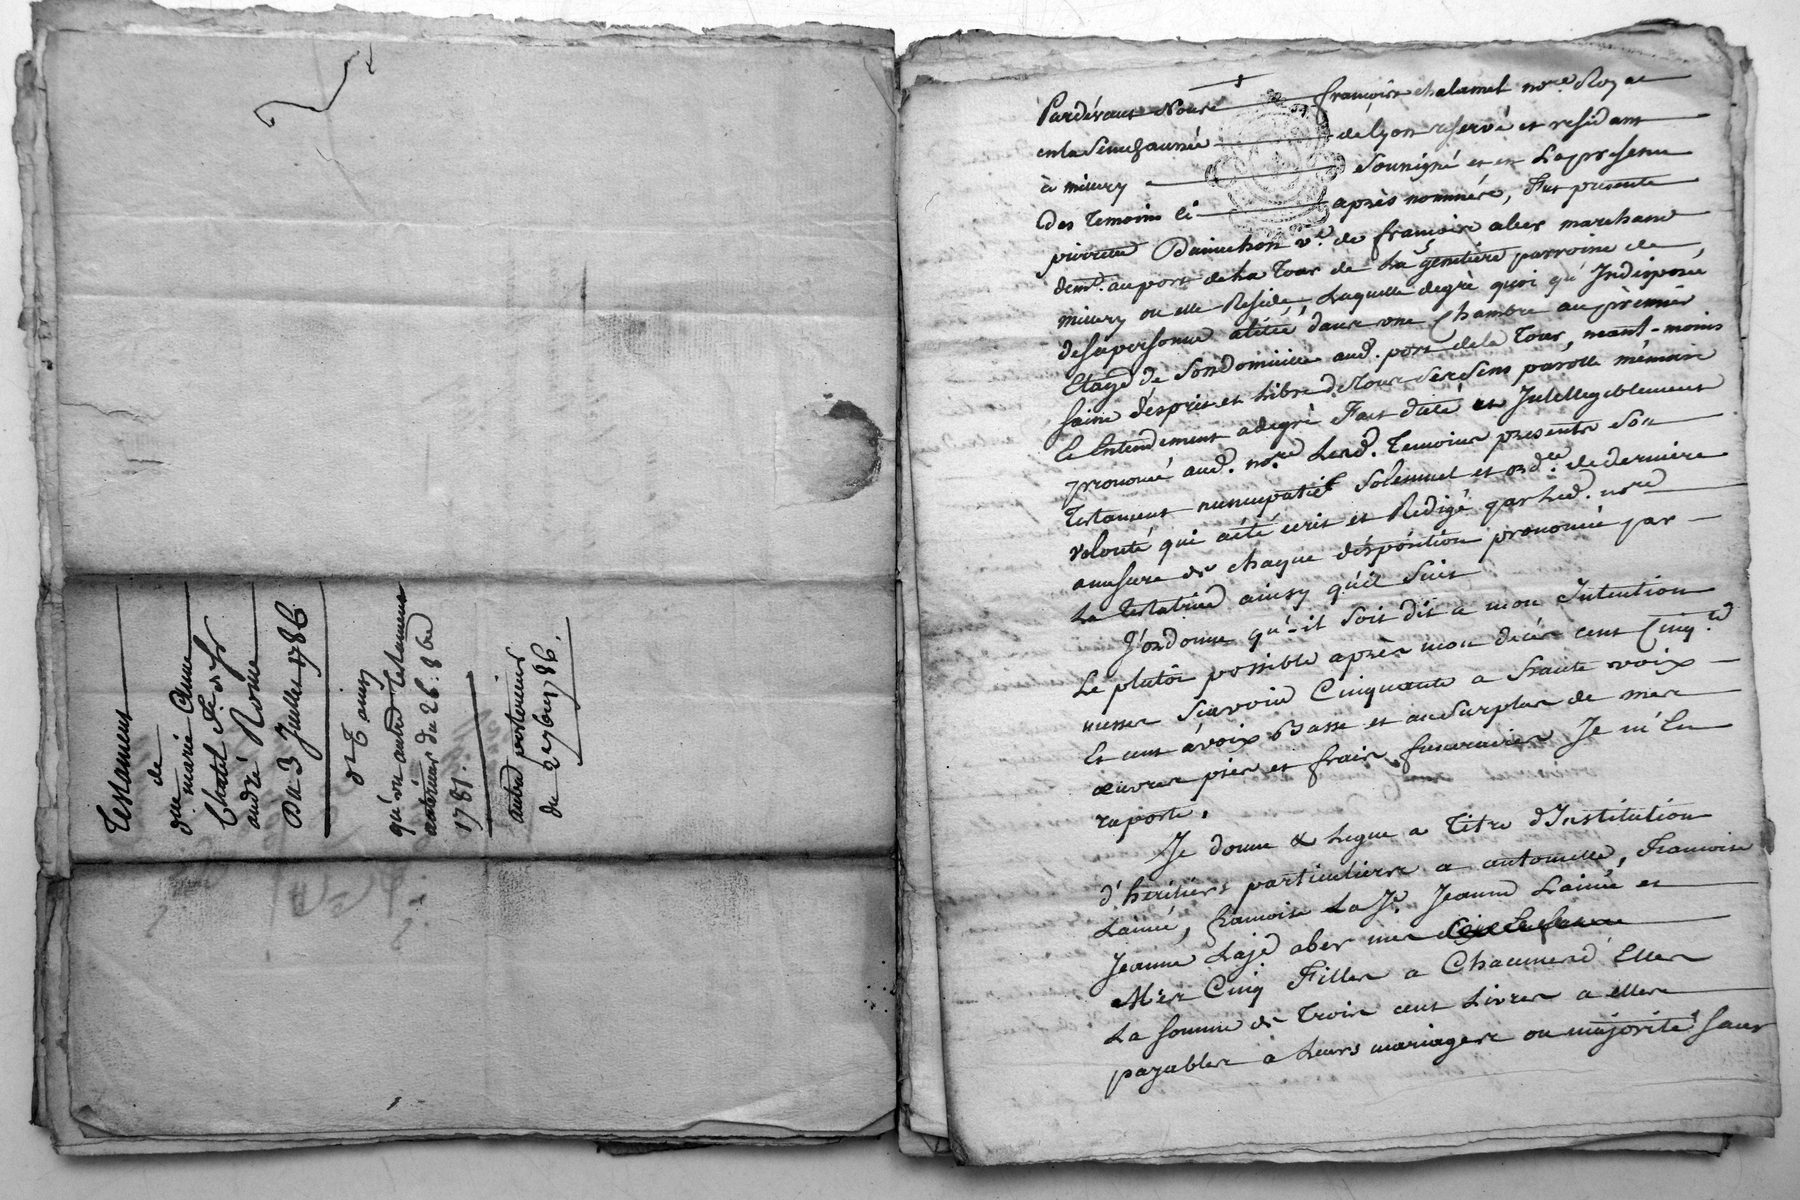 Testament
de
dlle marie Anne
Chatel fe. de Sr
andré Rome
Du 3 Juillet 1786
qu'un autre Testament
antérieur du 26: 8bre
1781.
autre postérieur
du 2 9bre 86.
Pardévant Nous françois chalamel nore. Royal
en la Sénéchaussée de lyon reservé et residant
à millery Soussigné et en La presence
des temoins ci après nommés, Fut presente
pierrette ve. de françois aber marchand
demt. au port de la Tour de La parroisse de
millery ou elle Reside, Laquelle degré quoi qu'Indisposée
desa personne alitée dans une Chambre au premier
Etage de Son domicille aud. port de la Tour, neant-moins
saine d'esprit et Libre de tous Ses Sens parolle mémoire
et Entendement a degré Fait dicté et Intelligiblement
prononcé aud. nore. Lesd. Temoins presents Son
Testament nuncupatif Solemnel et ordre. de derniere
volonté qui a été écrit et Rédigé par Led. nore.
amesure de chaque disposition prononcée par
La Testatrice ainsy qu'il Suit
J'ordonne qu'-il Soit dit a mon Intention
Le plutôt possible après mon decés cent Cinqte.
messes Scavoir Cinquante a haute voix
Et cent à voix Basse et au Surplus de mes
œuvres pies et frais funeraires Je m'En
raporte.
Je donne & Legue a Titre d'Institution
d'héritiers particulieres a antoinette, Francoise
Lainée, francoise La Je. Jeanne Lainée et
Jeanne Laje aber mes
Mes Cinq Filles a Chacune d'Elles
La Somme de Trois cent Livres a elles
payables à Leurs mariages ou majorité Sans